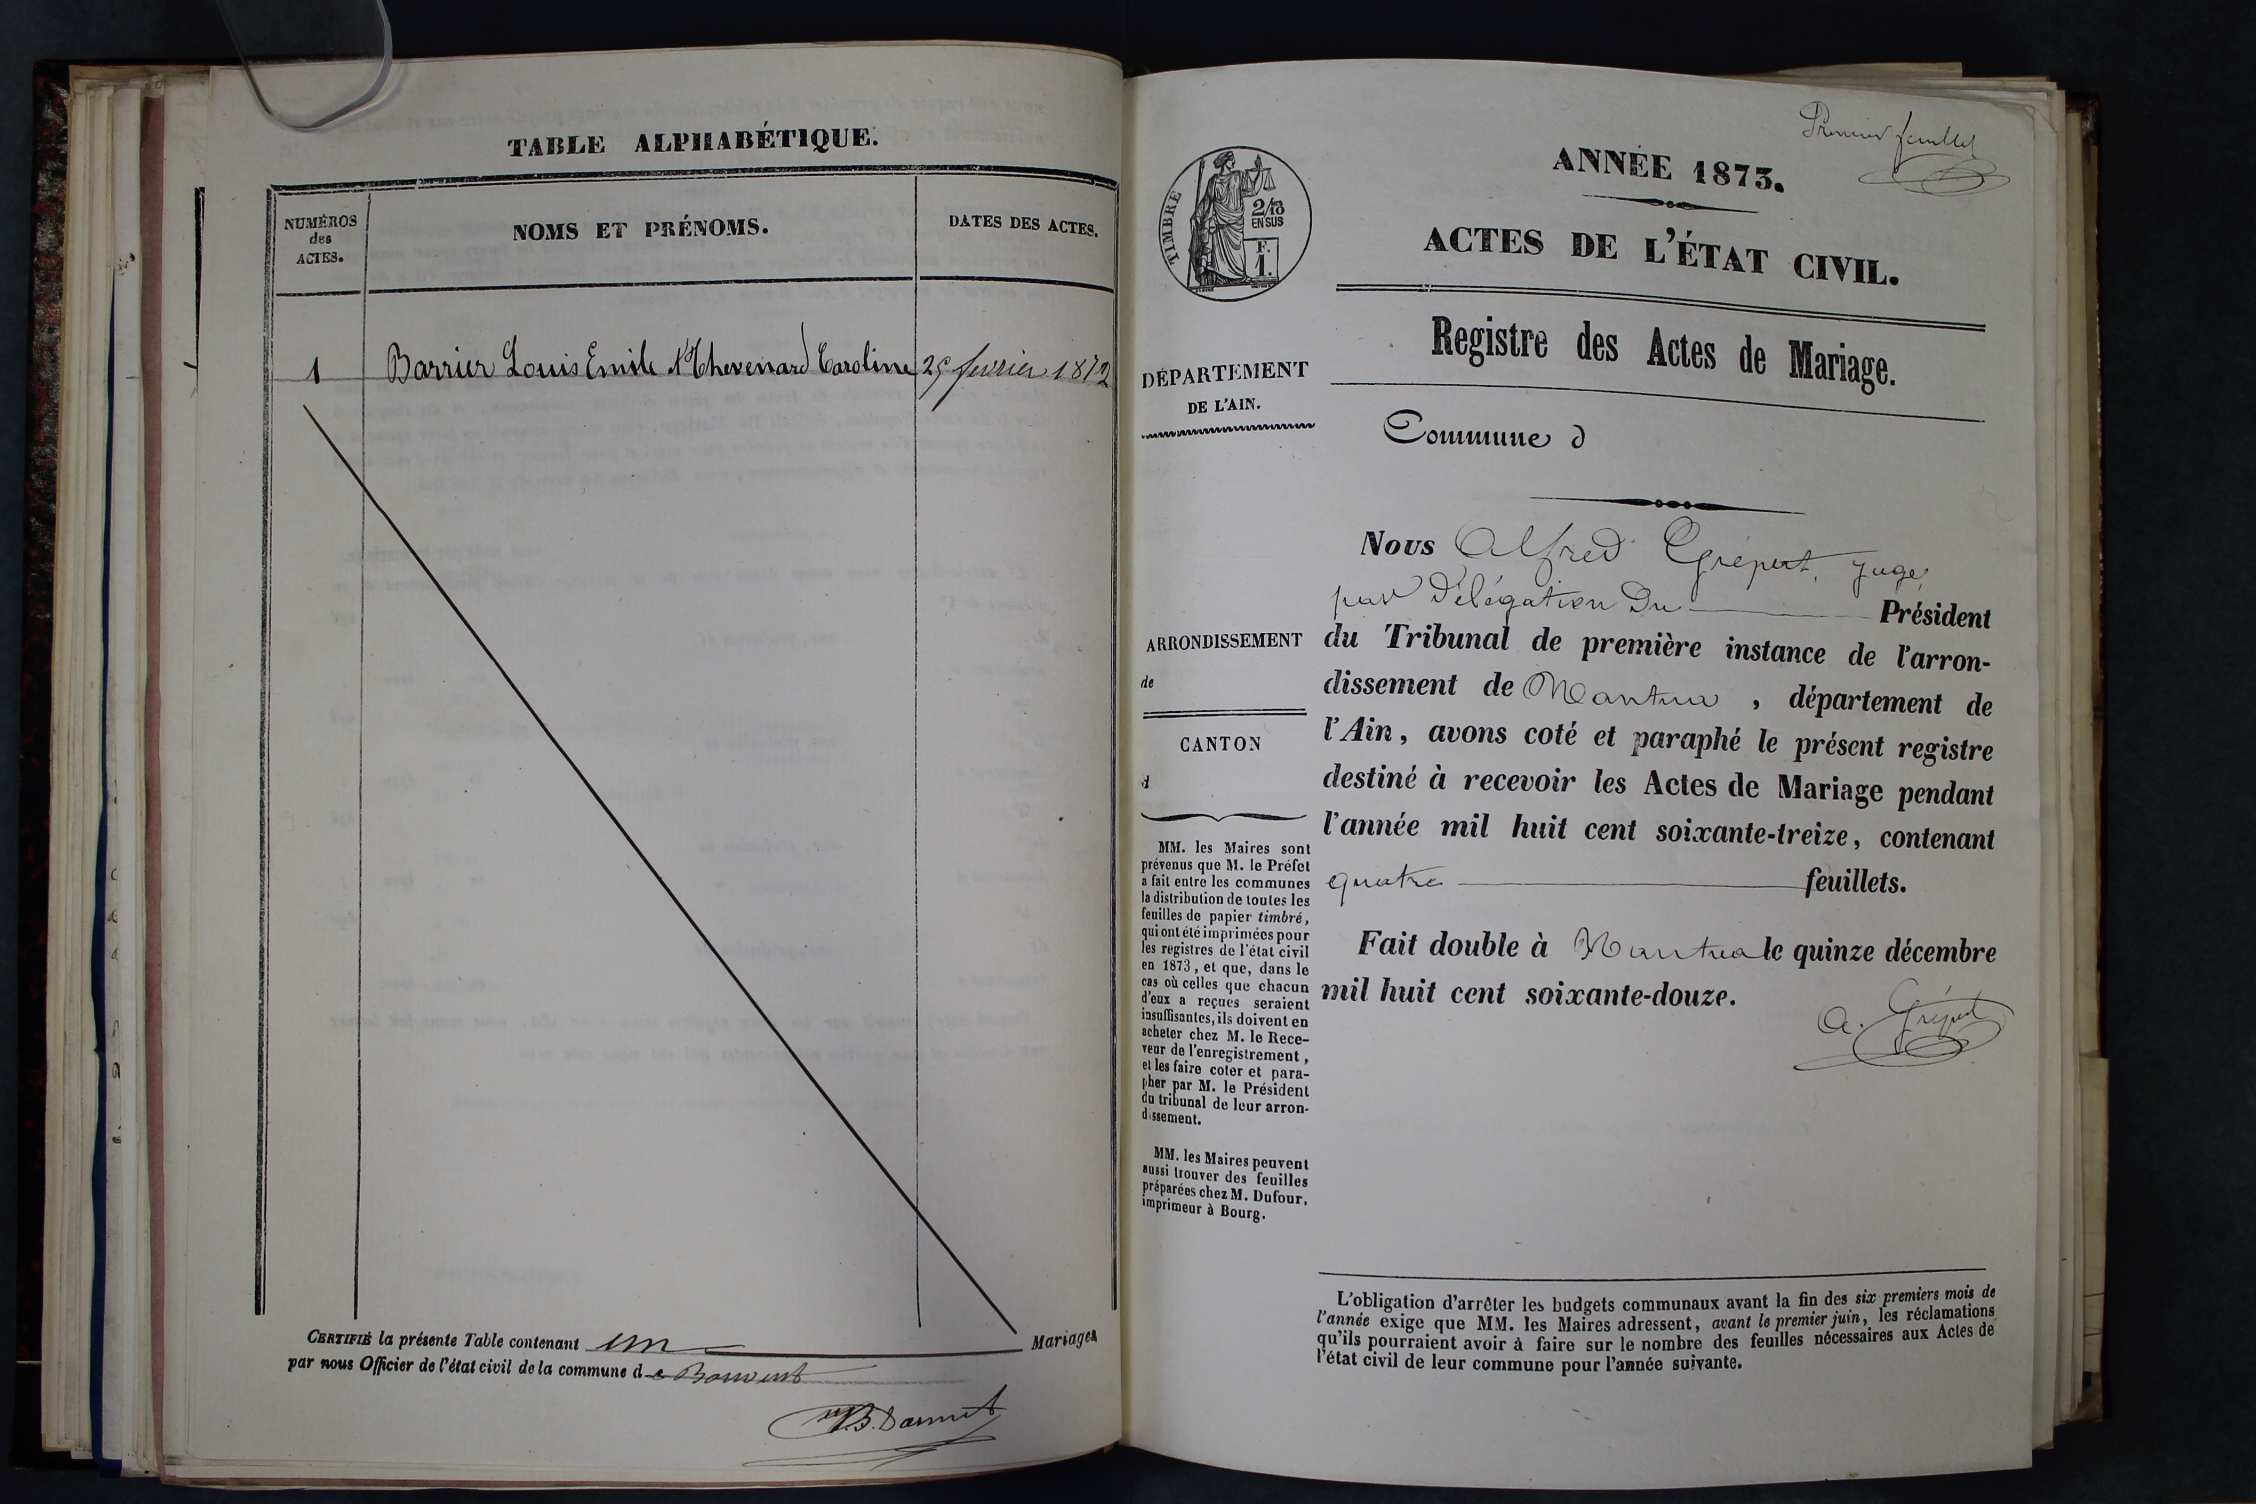 TABLE ALPHABÉTIQUE.
NUMÉROS
des
ACTES.
NOMS ET PRÉNOMS.
DATES DES ACTES.
1 Barrier Louis Emile & Thevenard Caroline 25 février 1872
CERTIFIÉ la présente Table contenant un Mariages
par nous Officier de l'état civil de la commune de Bouvent
Premier feuillet
ANNÉE 1873.
ACTES DE L'ÉTAT CIVIL.
Registre des Actes de Mariage.
TIMBRE
2/10
EN SUS
F.
1.
DÉPARTEMENT
DE L'AIN.
Commune d
Nous Alfred Grépat, juge
par Délégation Du Président
du Tribunal de première instance de l'arron-
dissement de Nantua, département de
l'Ain, avons coté et paraphé le présent registre
destiné à recevoir les Actes de Mariage pendant
l'année mil huit cent soixante-treize, contenant
quatre feuillets.
Fait double à Nantua le quinze décembre
mil huit cent soixante-douze.
ARRONDISSEMENT
de
CANTON
d
MM. les Maires sont
prévenus que M. le Préfet
a fait entre les communes
la distribution de toutes les
feuilles de papier timbré,
qui ont été imprimées pour
les registres de l'état civil
en 1873, et que, dans le
cas où celles que chacun
d'eux a reçues seraient
insuffisantes, ils doivent en
acheter chez M. le Rece-
veur de l'enregistrement,
et les faire coter et para-
pher par M. le Président
du tribunal de leur arron-
dissement.
MM. les Maires peuvent
aussi trouver des feuilles
préparées chez M. Dufour,
imprimeur à Bourg.
L'obligation d'arrêter les budgets communaux avant la fin des six premiers mois de
l'année exige que MM. les Maires adressent, avant le premier juin, les réclamations
qu'ils pourraient avoir à faire sur le nombre des feuilles nécessaires aux Actes de
l'état civil de leur commune pour l'année suivante.